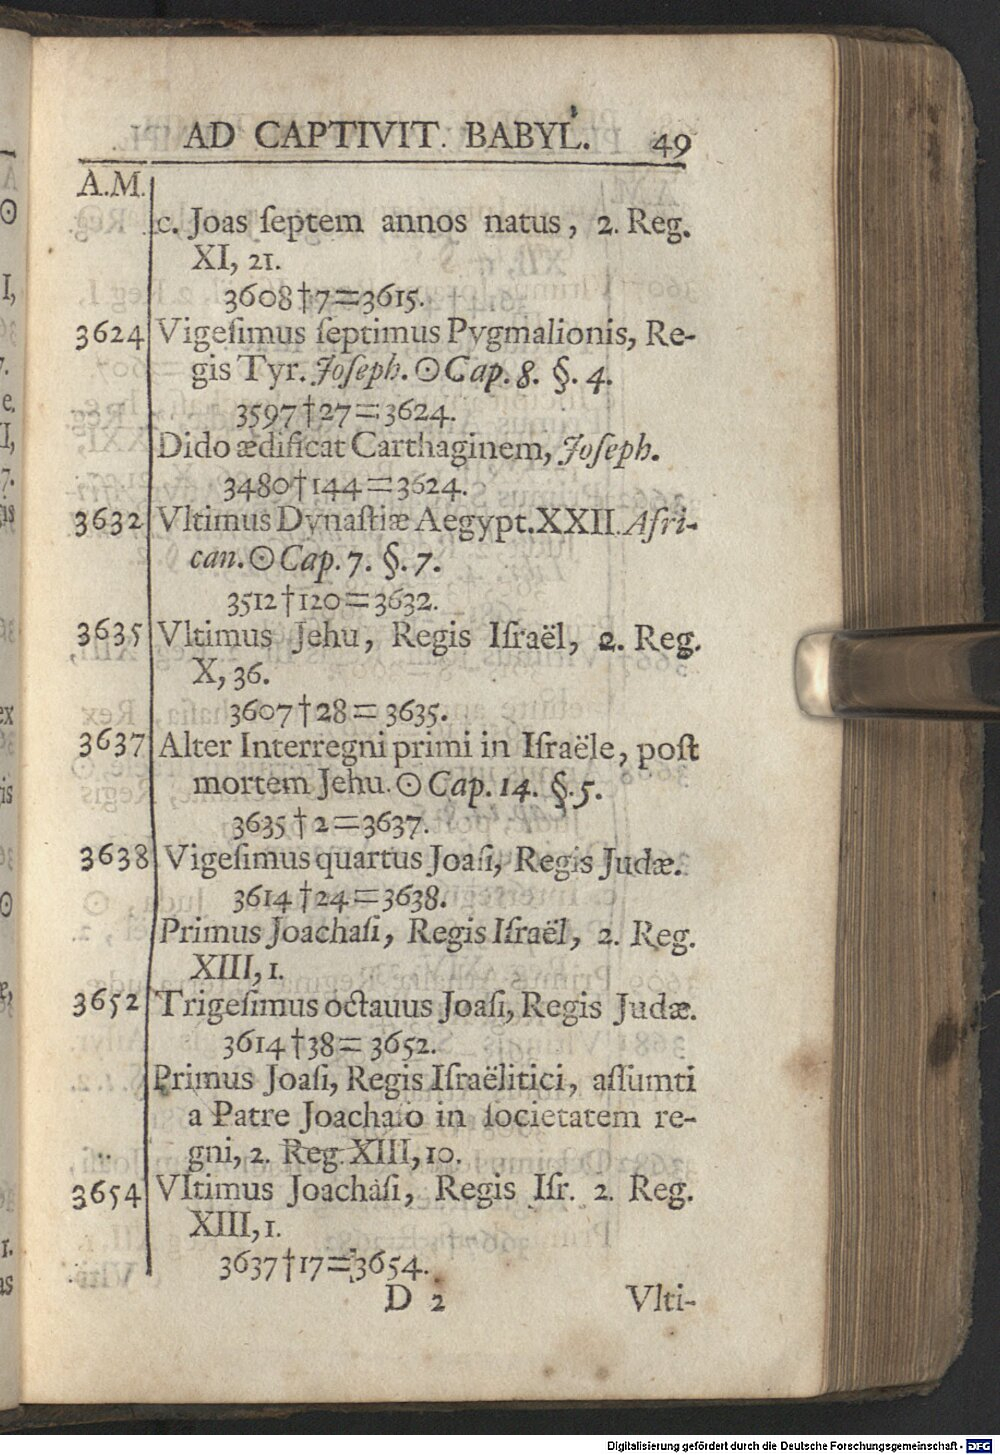 AD CAPTIVIT. BABYL. 49
A.M.
c. Joas ſeptem annos natus, 2. Reg.
XI, 21.
3608†7=3615.
3624 Vigeſimus ſeptimus Pygmalionis, Re-
gis Tyr. Joſeph. ☉ Cap. 8. §. 4.
3597†27=3624.
Dido ædificat Carthaginem, Joſeph.
3480†144=3624.
3632 Vltimus Dynaſtiæ Aegypt. XXII. Afri-
can. ☉ Cap. 7. §. 7.
3512†120=3632.
3635 Vltimus Jehu, Regis Iſraël, 2. Reg.
X, 36.
3607†28=3635.
3637 Alter Interregni primi in Iſraële, poſt
mortem Jehu. ☉ Cap. 14. §. 5.
3635†2=3637.
3638 Vigeſimus quartus Joaſi, Regis Judæ.
3614†24=3638.
Primus Joachaſi, Regis Iſraël, 2. Reg.
XIII, 1.
3652 Trigeſimus octauus Joaſi, Regis Judæ.
3614†38=3652.
Primus Joaſi, Regis Iſraëlitici, aſſumti
a Patre Joachaſo in ſocietatem re-
gni, 2. Reg. XIII, 10.
3654 Vltimus Joachaſi, Regis Iſr. 2. Reg.
XIII, 1.
3637†17=3654.
D 2 Vlti-
Digitalisierung gefördert durch die Deutsche Forschungsgemeinschaft - DFG